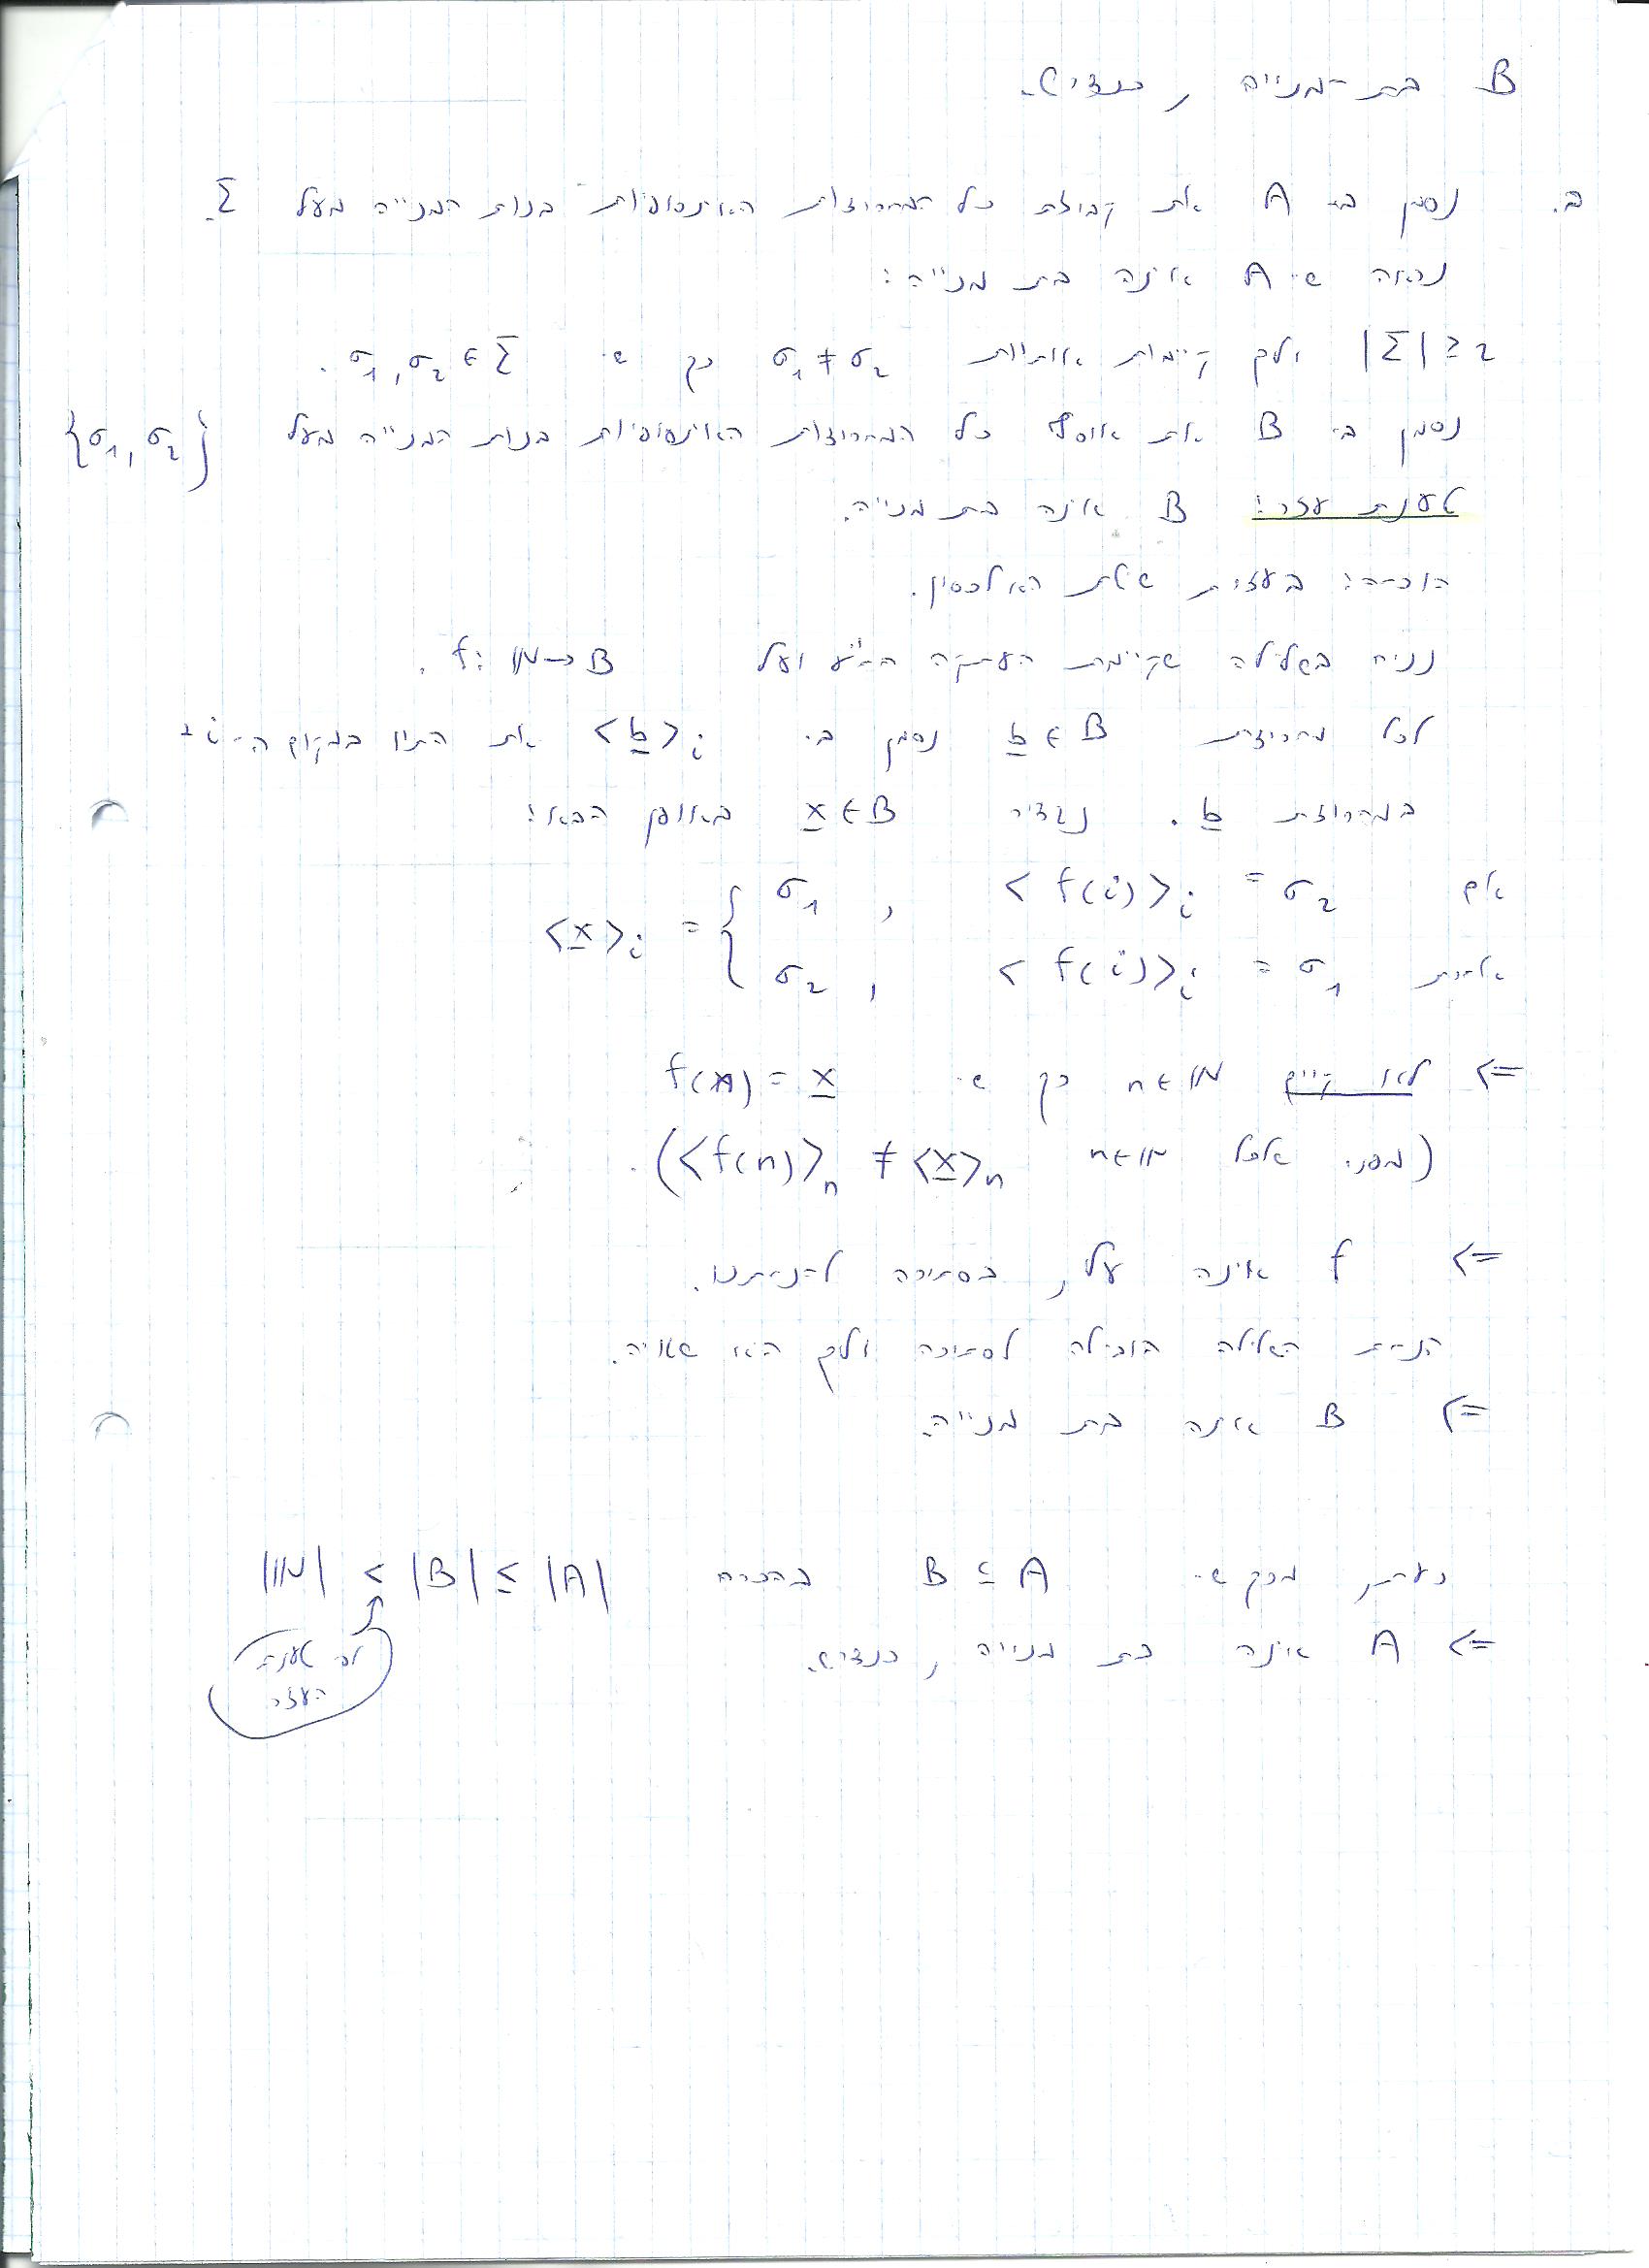 B בת-מנייה, כנדרש.
ב. נסמן ב- A את קבוצת כל המחרוזות האינסופיות בנות המנייה מעל Σ.
נראה ש- A אינה בת מנייה:
|Σ| ≥ 2 ולכן קיימות אותיות σ₁ ≠ σ₂ כך ש- σ₁, σ₂ ∈ Σ.
נסמן ב- B את אוסף כל המחרוזות האינסופיות בנות המנייה מעל {σ₁, σ₂}
טענת עזר: B אינה בת מנייה.
הוכחה: בעזרת שיטת האלכסון.
נניח בשלילה שקיימת העתקה חח"ע ועל f: ℕ→B.
לכל מחרוזת b ∈ B נסמן ב- <b>ᵢ את התיו במקום ה-i
במחרוזת b. נגדיר x ∈ B באופן הבא:
<x>ᵢ = { σ₁, <f(i)>ᵢ = σ₂ אם
σ₂, <f(i)>ᵢ = σ₁ אחרת
=> לא קיים n ∈ ℕ כך ש- f(n) = x
(מפני שלכל n ∈ ℕ <f(n)>ₙ ≠ <x>ₙ).
=> f אינה על, בסתירה להנחתנו.
הנחת השלילה הובילה לסתירה ולכן היא שגויה.
=> B אינה בת מנייה.
כעת, מכך ש- B ⊆ A בהכרח |ℕ| < |B| ≤ |A|
לפי טענת
העזר
=> A אינה בת מנייה, כנדרש.